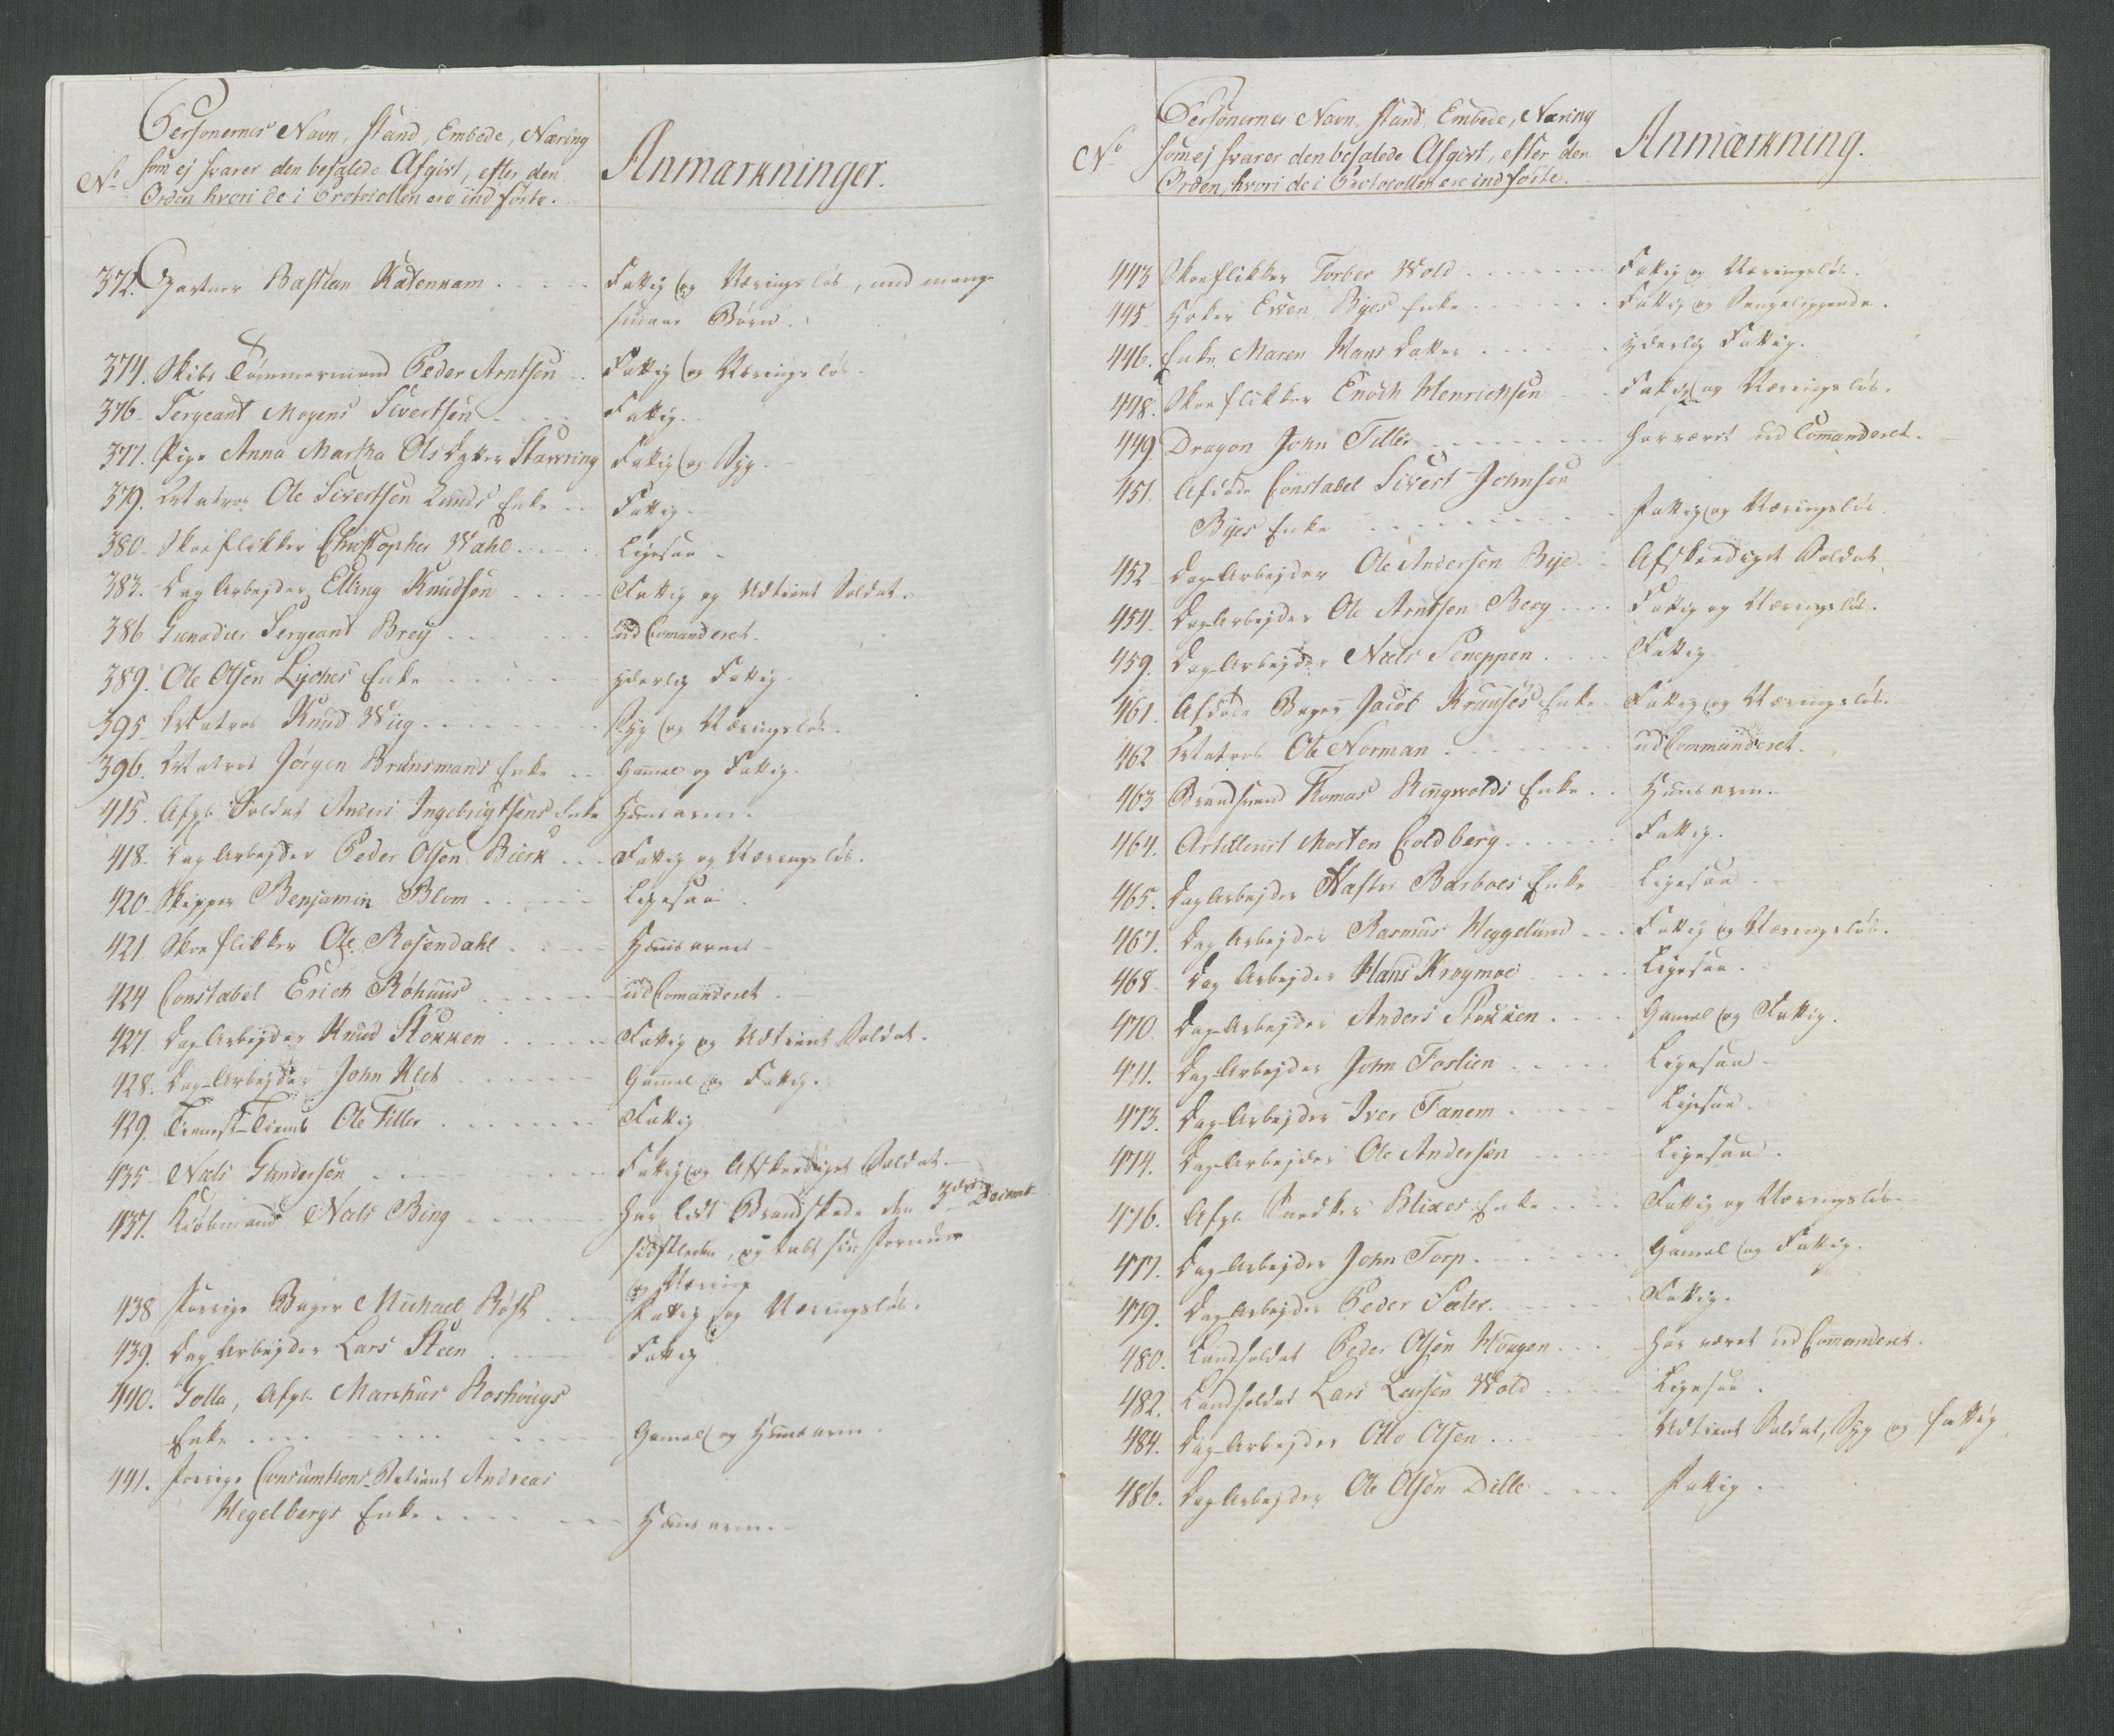 No
Personernes Navn, Stand, Embede, Næring
som ej svarer den befalede Afgivt, efter den
Orden hvori de i Protocollen ere indførte.
Anmærkninger.
372. Gartner Bastian Katennam Fattig og Næringsløs, med mange
smaae Børn.
374. Skibs Tømmermand Peder Arntsen Fattig og Næringsløs.
376. Sergeant Mogens Sivertsen Fattig.
377. Pige Anna Martha Olsdatter Stavring Fattig og Syg.
379. Matros Ole Sivertsen Lunds Enke Fattig.
380. Skoeflikker Christopher Wahl Ligesaa.
383. Dag Arbejder Elling Knudsen Fattig og Udtient Soldat.
386 Grenadeer Sergeant Brey ud Comanderet.
389. Ole Olsen Lyches Enke yderlig Fattig.
395. Matros Knud Wiig Syg og Næringsløs.
396. Matros Jørgen Brunsmands Enke Gammel og Fattig.
415. Afg: Soldat Anders Ingebrigtsens Enke Huusarm.
418. Dag Arbejder Peder Olsen Bierk Fattig og Næringsløs.
420. Skipper Benjamin Blom Ligesaa.
421. Skoeflikker Ole Rosendahl Huusarm.
424 Constabel Erich Røhuus ud Comanderet.
427. Dag-Arbejder Knud Stokken Fattig og Udtient Soldat.
428. Dag-Arbejder John Klet Gammel og Fattig.
429. Tienest-Tieneb Ole Tiller Fattig
435. Niels Gundersen Fattig og Afskeediget Soldat.
437. Kiøbmand Niels Bing Har lidt Brandskade den 3die Decembr
sidstleden, og tabt sin Formue
og Næring
438 Forrige Bager Michael Røst Fattig og Næringsløs.
439. Dag Arbejder Lars Steen Fattig
440. Golla, Afg: Marchus Roshougs
Enke Gamel og Huusarm.
441. Forrige Consumtions-Betient Andreas
Megelbergs Enke Huusarm.
No
Personernes Navn, Stand, Embede, Næring
som ej svarer den befalede Afgivt, efter den
Orden, hvori de i Protocollen ere indførte.
Anmærkning.
443 Skoeflikker Torber Wold Fattig og Næringsløs.
445. Høker Even Byes Enke Fattig og Sengeliggende.
446. Enke Maren Hans Datter yderlig Fattig.
448. Skoeflikker Enoch Henrichsen Fattig og Næringsløs.
449. Dragon John Tiller har været ud Comanderet.
451. Afdøde Constabel Sivert Johnsen
Byes Enke Fattig og Næringsløs.
452. Dag-Arbejder Ole Andersen Bye Afskeediget Soldat.
454. Dag-Arbejder Ole Arntsen Berg Fattig og Næringsløs.
459. Dag-Arbejder Niels Seneppen Fattig
461. Afdøde Bager Jacob Kruuses Enke Fattig og Næringsløs.
462 Matros Ole Norman ud Commanderet.
463 Brandsvend Thomas Ringwolds Enke Huusarm.
464. Artillerist Morten Coldberg Fattig.
465. Dag Arbejder Hafter Barboes Enke Ligesaa.
467. Dag Arbejder Rasmus Heggelund Fattig og Næringsløs.
468. Dag Arbejder Hans Krogmoe Ligesaa.
470. Dag-Arbejder Anders Stokken Gamel og Fattig.
471. Dag-Arbejder John Foslien Ligesaa
473. Dag-Arbejder Iver Tanem Ligesaa.
474. Dag-Arbejder Ole Andersen Ligesaa.
476. Afg: Snedker Blixes Enke Fattig og Næringsløs.
477. Dag-Arbejder John Torp Gamel og Fattig.
479. Dag-Arbejder Peder Sæter Fattig.
480. Landsoldat Peder Olsen Hougen Har været ud Commanderet.
482. Landsoldat Lars Larsen Wold Ligesaa.
484. Dag-Arbejder Otto Olsen Udtient Soldat, Syg og fattig
486. Dag Arbejder Ole Olsen Dille Fattig.